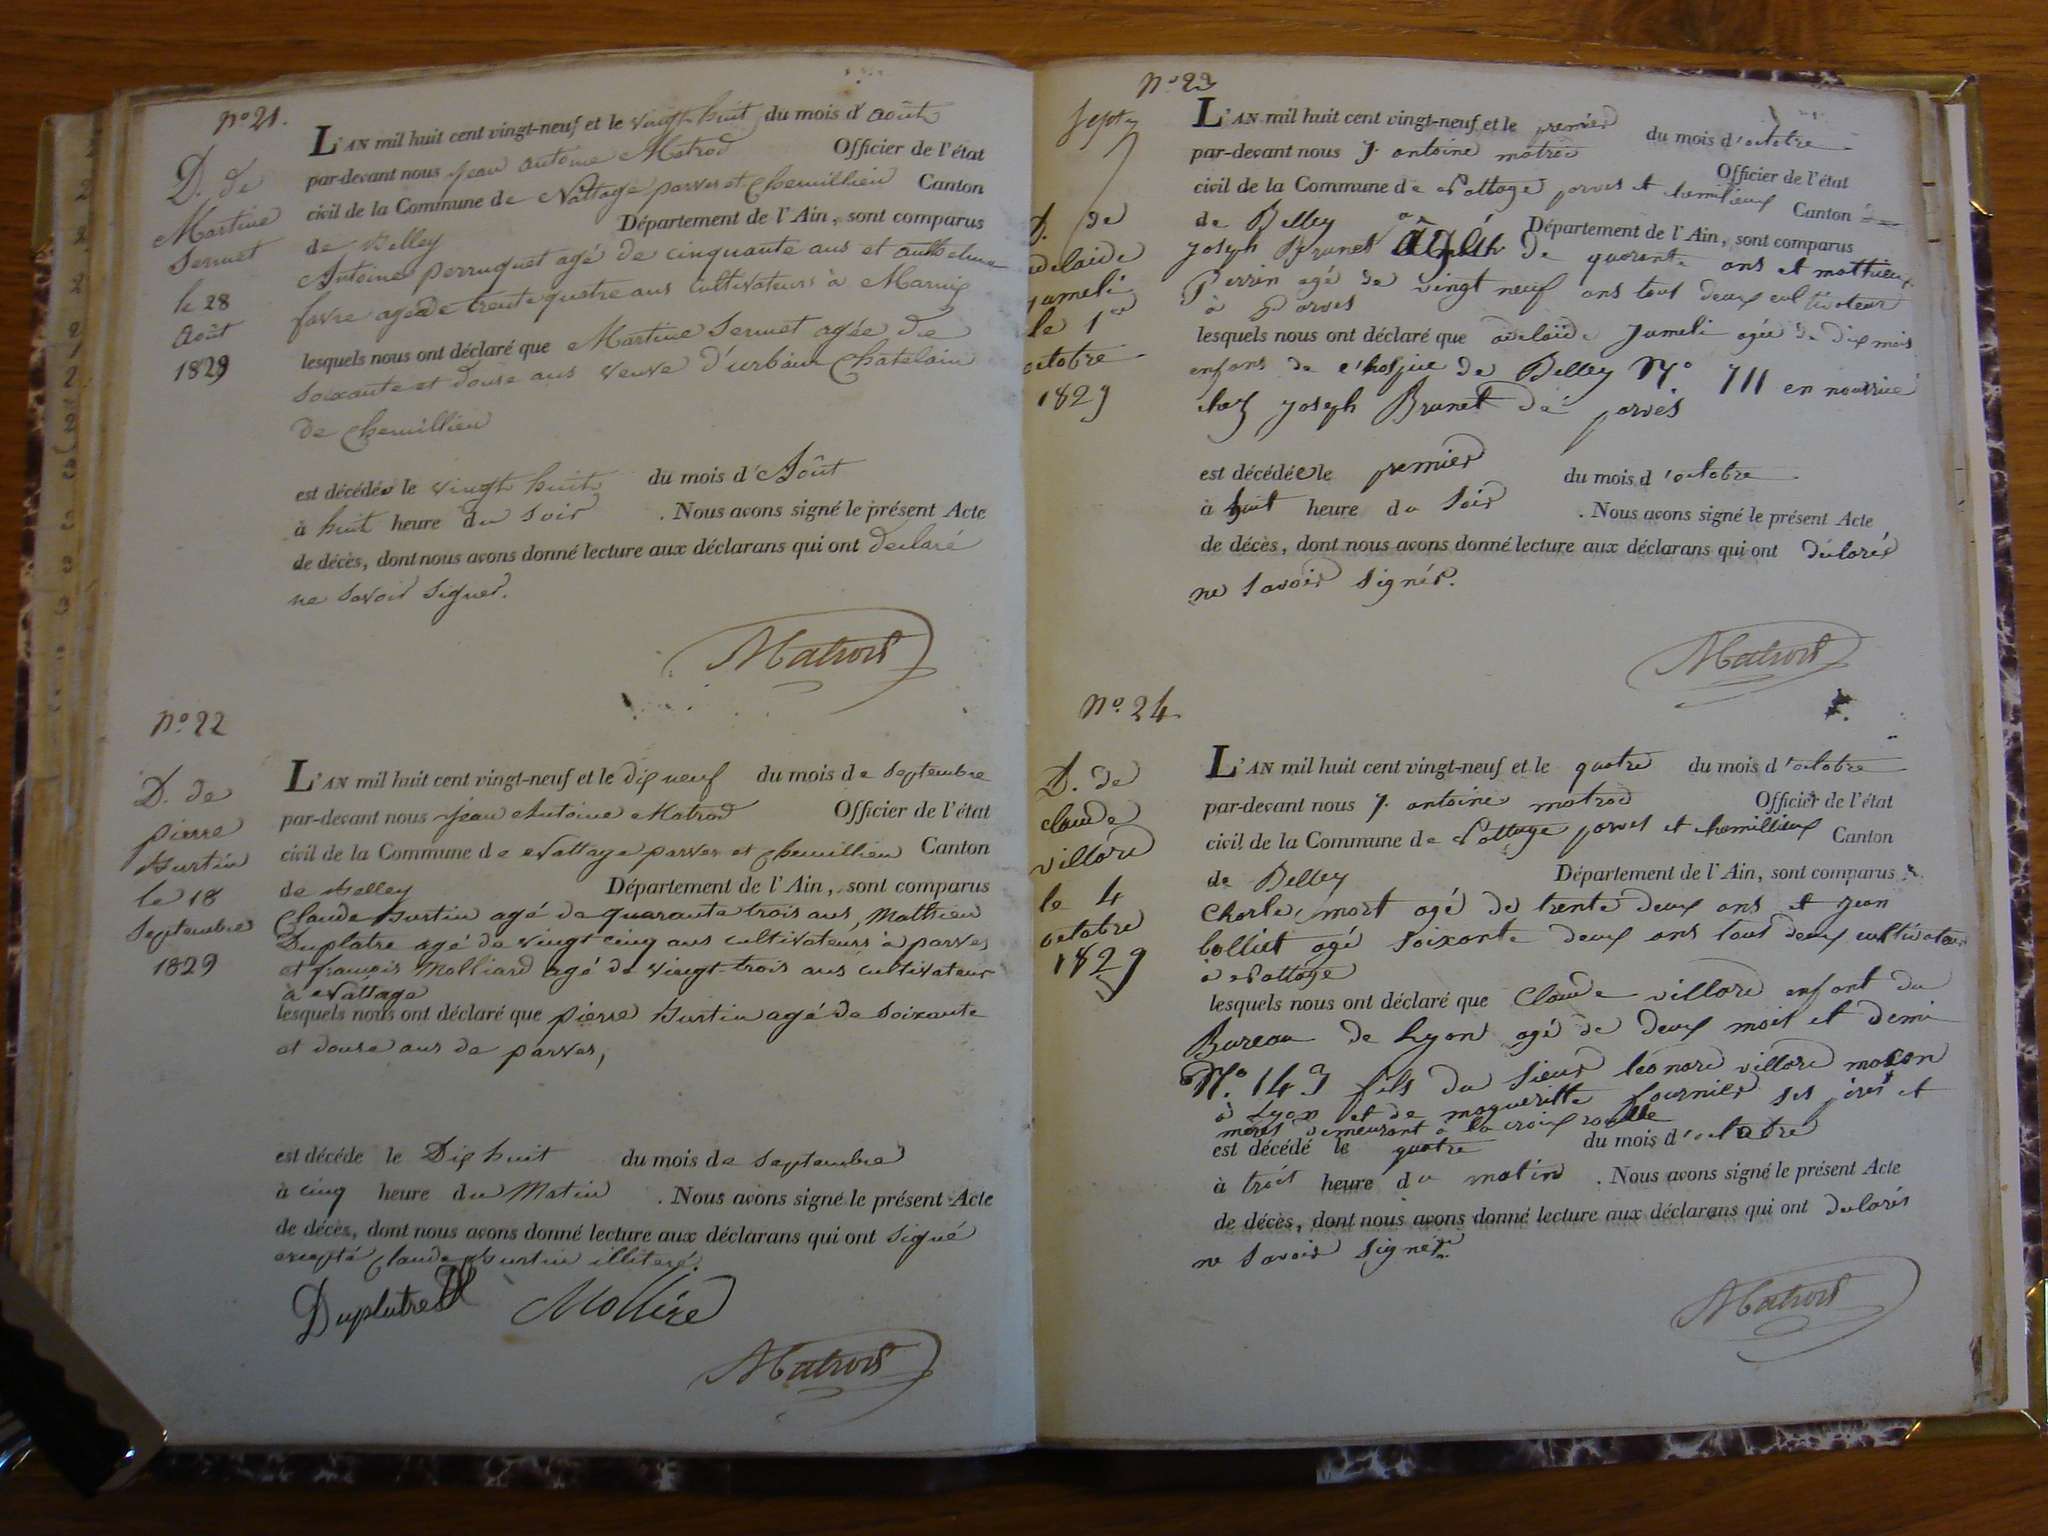 N° 21.
D. de
Martine
Sermet
le 28
Août
1829
L'AN mil huit cent vingt-neuf et le vingt huit du mois d'août
par-devant nous Jean antoine Matrod Officier de l'état
civil de la Commune de Nattage parves et Chemillieu Canton
de Belley Département de l'Ain, sont comparus
Antoine perruquet agé de cinquante ans et anthelme
favre agé de trente quatre ans cultivateurs à
lesquels nous ont déclaré que Martine Sermet agée de
soixante et douse ans veuve d'urbain Chatelain
de Chemillieu
est décédée le vingt huit du mois d'Août
à huit heure du soir . Nous avons signé le présent Acte
de décès, dont nous avons donné lecture aux déclarans qui ont declaré
ne savoir signer.
Matrod
N° 22
D. de
pierre
Burtin
le 18
Septembre
1829
L'AN mil huit cent vingt-neuf et le dix neuf du mois de Septembre
par-devant nous Jean Antoine Matrod Officier de l'état
civil de la Commune de Nattage parves et Chemillieu Canton
de Belley Département de l'Ain, sont comparus
Claude Burtin agé de quarante trois ans, Mathieu
Duplatre agé de vingt cinq ans cultivateurs à parves
et françois Molliard agé de vingt-trois ans cultivateur
à Nattage
lesquels nous ont déclaré que pierre Burtin agé de soixante
et douse ans de parves,
est décédé le Dix huit du mois de Septembre
à cinq heure du Matin . Nous avons signé le présent Acte
de décès, dont nous avons donné lecture aux déclarans qui ont signé
excepté Claude Burtin illiteré.
Duplatre
Matrod
N° 23
Septe
D. de
adelaide
jumeli
le 1er
octobre
1829
L'AN mil huit cent vingt-neuf et le premier du mois d'octobre
par-devant nous J. antoine matrod Officier de l'état
civil de la Commune de Nattage parves et chemilieux Canton
de Belley Département de l'Ain, sont comparus
joseph Brunet agé de quarante ans et mathieux
Perrin agé de vingt neuf ans tout deux cultivateur
à Parves
lesquels nous ont déclaré que adelaïde jumeli agée de dix mois
enfans de l'hospice de Belley N° 711 en nourrice
chez joseph Brunet de parves
est décédée le premier du mois d'octobre
à huit heure du Soir . Nous avons signé le présent Acte
de décès, dont nous avons donné lecture aux déclarans qui ont déclarés
ne savoir signér.
Matrod
N° 24
D. de
claude
villard
le 4
octobre
1829
L'AN mil huit cent vingt-neuf et le quatre du mois d'octobre
par-devant nous J. antoine matrod Officier de l'état
civil de la Commune de Nattage parves et chemillieux Canton
de Belley Département de l'Ain, sont comparus
Charles mort agé de trente deux ans et jean
Colliet agé soixante deux ans tout deux cultivateur
à Nattage
lesquels nous ont déclaré que Claude villard enfant du
Bureau de Lyon agé de deux mois et demi
N° 143 fils du sieur léonard villard macon
à Lyon et de magueritte fournier ses péres et
meres demeurant à la croix rousse
est décédé le quatre du mois d'octobre
à trois heure du matin . Nous avons signé le présent Acte
de décès, dont nous avons donné lecture aux déclarans qui ont declarés
ne savoir signér
Matrod